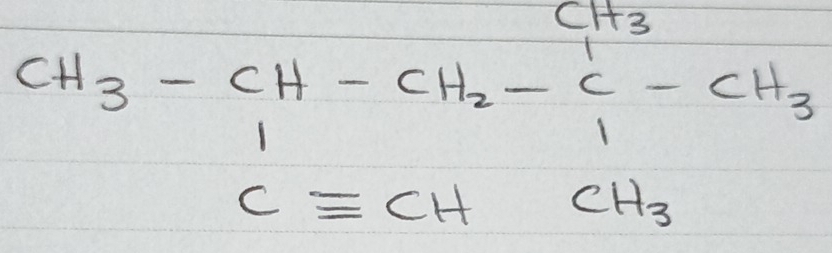 CH3
CH3 - CH - CH2 - C - CH3
C ≡ CH CH3